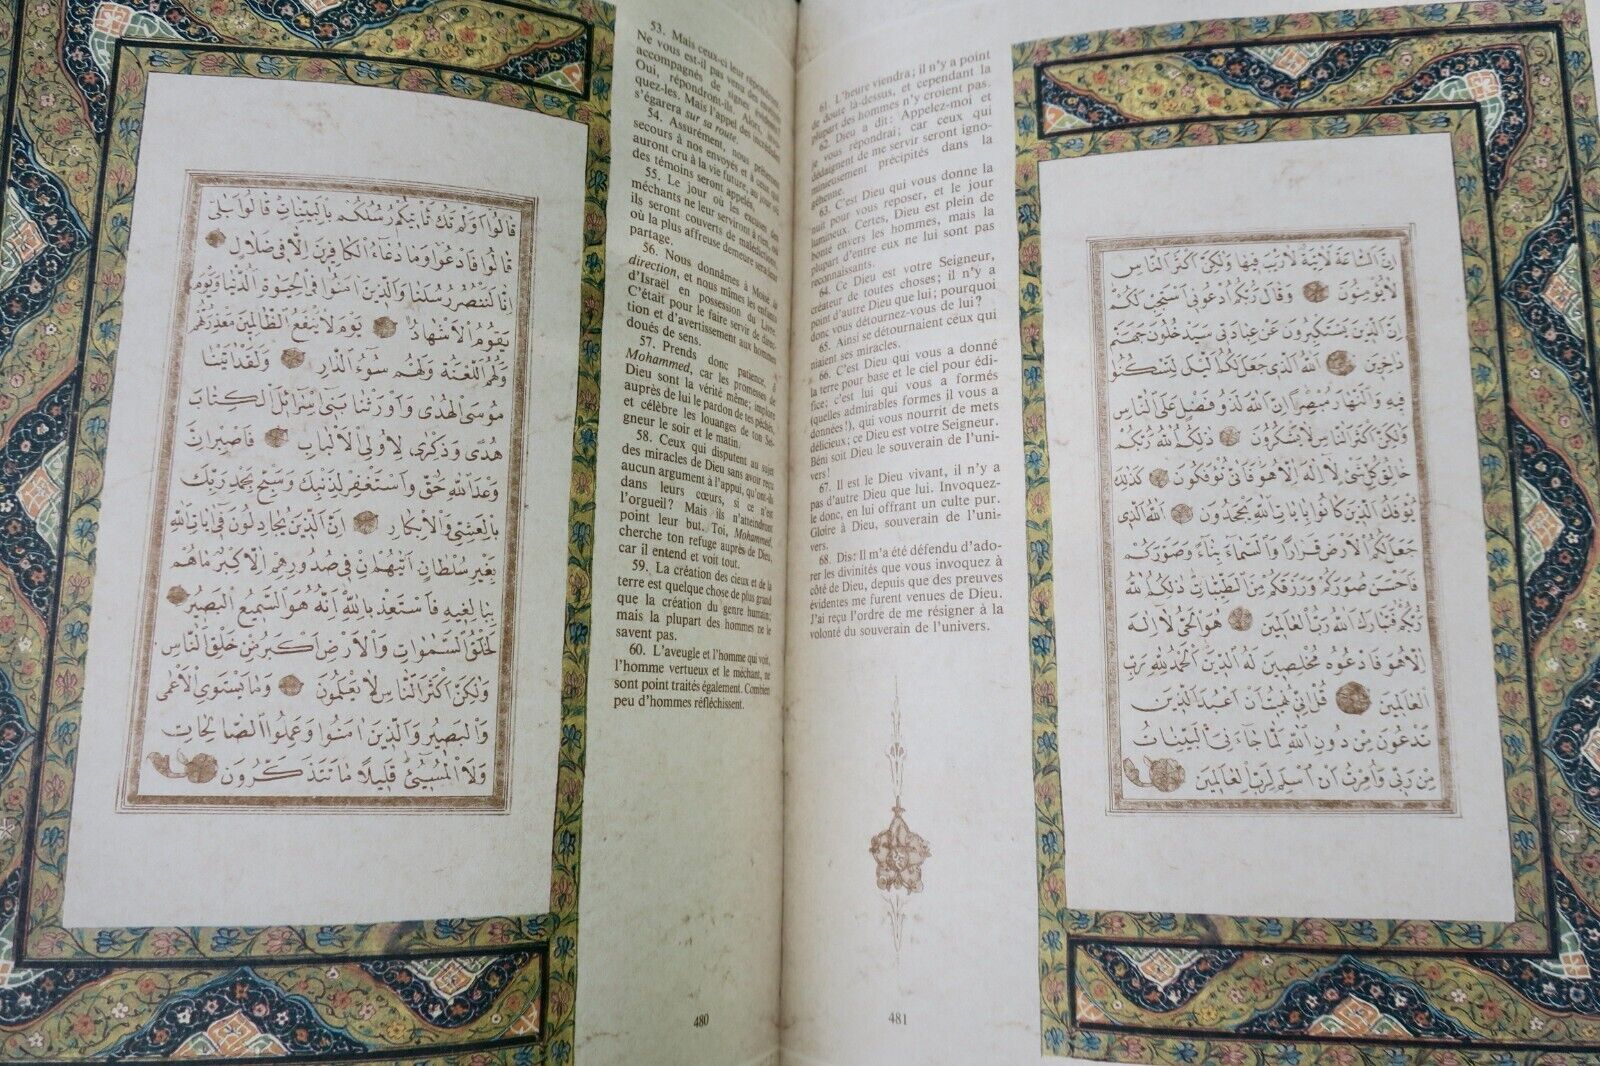 قالوا اولم تك تاتيكم رسلكم بالبينات قالوا بلى
قالوا فادعوا وما دعاء الكافرين الا في ضلال
انا لننصر رسلنا والذين امنوا في الحيوة الدنيا ويوم
يقوم الاشهاد يوم لا ينفع الظالمين معذرتهم
ولهم اللعنة ولهم سوء الدار ولقد اتينا
موسى الهدى واورثنا بني اسرائل الكتاب
هدى وذكرى لاولي الالباب فاصبر ان
وعد الله حق واستغفر لذنبك وسبح بحمد ربك
بالعشي والابكار ان الذين يجادلون في ايات الله
بغير سلطان اتيهم ان في صدورهم الا كبر ما هم
ببالغيه فاستعذ بالله انه هو السميع البصير
لخلق السموات والارض اكبر من خلق الناس
ولكن اكثر الناس لا يعلمون وما يستوي الاعمى
والبصير والذين امنوا وعملوا الصالحات
ولا المسيء قليلا ما تتذكرون
53. Mais ceux-ci leur répondront:
Ne vous est-il pas venu des envoyés
accompagnés de signes évidents?
Oui, répondront-ils. Alors, invo-
quez-les. Mais l'appel des incrédules
s'égarera sur sa route.
54. Assurément, nous prêterons
secours à nos envoyés et à ceux qui
auront cru à la vie future, au jour où
des témoins seront appelés,
55. Le jour où les excuses des
méchants ne leur serviront à rien, où
ils seront couverts de malédictions,
où la plus affreuse demeure sera leur
partage.
56. Nous donnâmes à Moïse la
direction, et nous mîmes les enfants
d'Israël en possession du Livre.
C'était pour le faire servir de direc-
tion et d'avertissement aux hommes
doués de sens.
57. Prends donc patience, ô
Mohammed, car les promesses de
Dieu sont la vérité même; implore
auprès de lui le pardon de tes péchés,
et célèbre les louanges de ton Sei-
gneur le soir et le matin.
58. Ceux qui disputent au sujet
des miracles de Dieu sans avoir reçu
aucun argument à l'appui, qu'ont-ils
dans leurs cœurs, si ce n'est
l'orgueil? Mais ils n'atteindront
point leur but. Toi, Mohammed,
cherche ton refuge auprès de Dieu,
car il entend et voit tout.
59. La création des cieux et de la
terre est quelque chose de plus grand
que la création du genre humain;
mais la plupart des hommes ne le
savent pas.
60. L'aveugle et l'homme qui voit,
l'homme vertueux et le méchant, ne
sont point traités également. Combien
peu d'hommes réfléchissent.
480
61. L'heure viendra; il n'y a point
de doute là-dessus, et cependant la
plupart des hommes n'y croient pas.
62. Dieu a dit: Appelez-moi et
je vous répondrai; car ceux qui
dédaignent de me servir seront igno-
minieusement précipités dans la
géhenne.
63. C'est Dieu qui vous donne la
nuit pour vous reposer, et le jour
lumineux. Certes, Dieu est plein de
bonté envers les hommes, mais la
plupart d'entre eux ne lui sont pas
reconnaissants.
64. Ce Dieu est votre Seigneur,
créateur de toutes choses; il n'y a
point d'autre Dieu que lui; pourquoi
donc vous détournez-vous de lui?
65. Ainsi se détournaient ceux qui
niaient ses miracles.
66. C'est Dieu qui vous a donné
la terre pour base et le ciel pour édi-
fice; c'est lui qui vous a formés
(quelles admirables formes il vous a
données!), qui vous nourrit de mets
délicieux; ce Dieu est votre Seigneur.
Béni soit Dieu le souverain de l'uni-
vers!
67. Il est le Dieu vivant, il n'y a
pas d'autre Dieu que lui. Invoquez-
le donc, en lui offrant un culte pur.
Gloire à Dieu, souverain de l'uni-
vers.
68. Dis: Il m'a été défendu d'ado-
rer les divinités que vous invoquez à
côté de Dieu, depuis que des preuves
évidentes me furent venues de Dieu.
J'ai reçu l'ordre de me résigner à la
volonté du souverain de l'univers.
481
ان الساعة لاتية لا ريب فيها ولكن اكثر الناس
لا يؤمنون وقال ربكم ادعوني استجب لكم
ان الذين يستكبرون عن عبادتي سيدخلون جهنم
داخرين الله الذي جعل لكم الليل لتسكنوا
فيه والنهار مبصرا ان الله لذو فضل على الناس
ولكن اكثر الناس لا يشكرون ذلكم الله ربكم
خالق كل شيء لا اله الا هو فانى تؤفكون كذلك
يؤفك الذين كانوا بايات الله يجحدون الله الذي
جعل لكم الارض قرارا والسماء بناء وصوركم
فاحسن صوركم ورزقكم من الطيبات ذلكم الله
ربكم فتبارك الله رب العالمين هو الحي لا اله
الا هو فادعوه مخلصين له الدين الحمد لله رب
العالمين قل اني نهيت ان اعبد الذين
تدعون من دون الله لما جاءني البينات
من ربي وامرت ان اسلم لرب العالمين